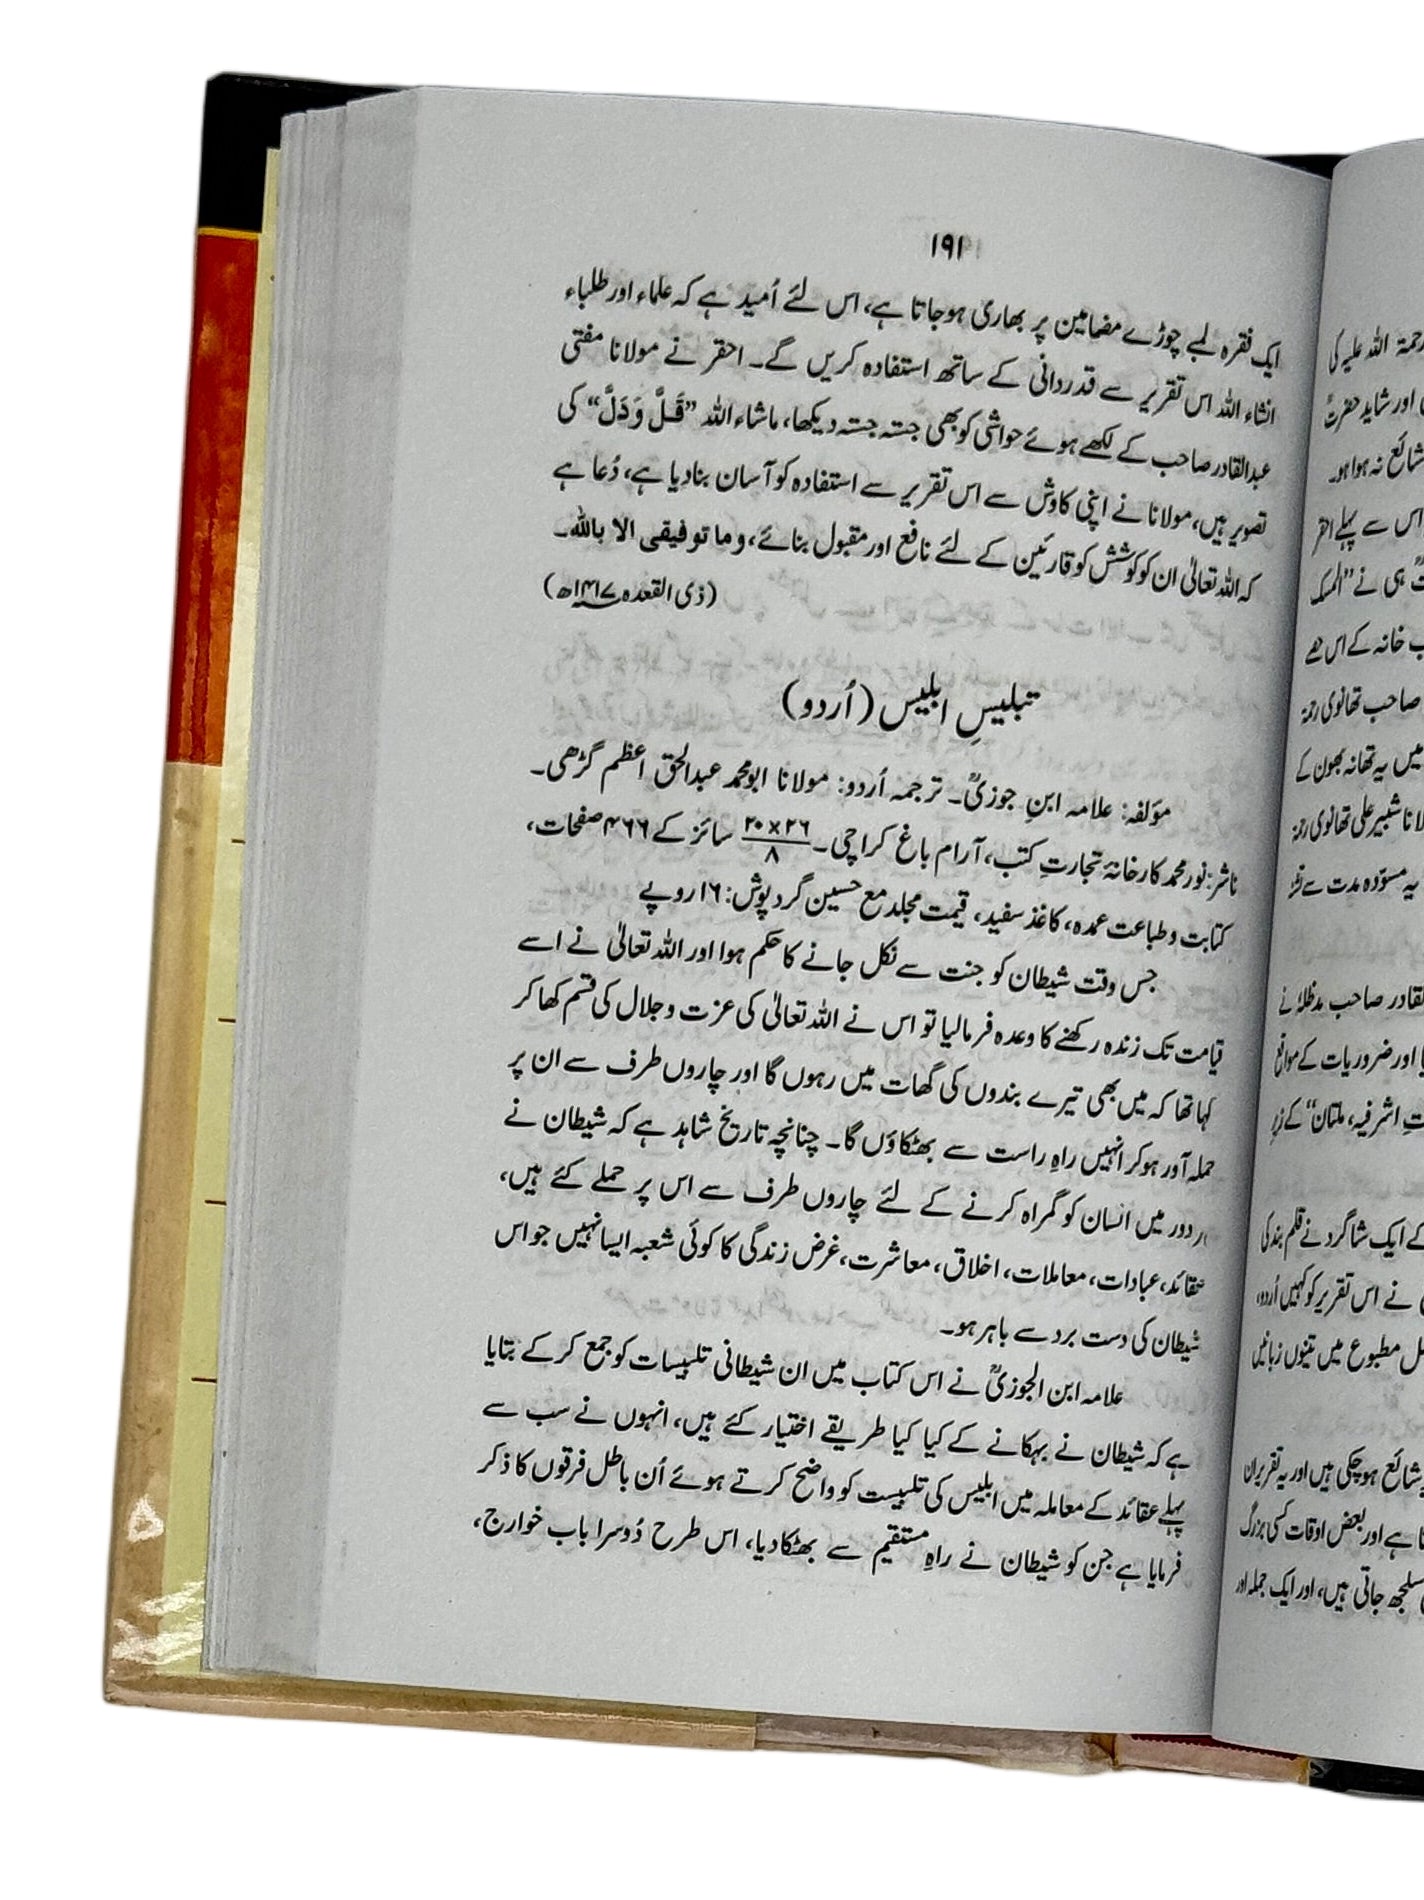 ۱۹۱
ایک فقرہ لمبے چوڑے مضامین پر بھاری ہوجاتا ہے، اس لئے اُمید ہے کہ علماء اور طلباء
انشاء اللہ اس تقریر سے قدردانی کے ساتھ استفادہ کریں گے۔ احقر نے مولانا مفتی
عبدالقادر صاحب کے لکھے ہوئے حواشی کو بھی جستہ جستہ دیکھا، ماشاء اللہ ”قَلَّ وَدَلَّ“ کی
تصویر ہیں، مولانا نے اپنی کاوش سے اس تقریر سے استفادہ کو آسان بنادیا ہے، دُعا ہے
کہ اللہ تعالیٰ ان کو کوشش کو قارئین کے لئے نافع اور مقبول بنائے، وما توفیقی الا باللہ۔
(ذی القعدہ ۱۴۱۷ھ)
تبلیسِ ابلیس (اُردو)
مؤلفہ: علامہ ابنِ جوزیؒ۔ ترجمہ اُردو: مولانا ابومحمد عبدالحق اعظم گڑھی۔
ناشر: نور محمد کارخانۂ تجارتِ کتب، آرام باغ کراچی۔ ۲۰×۲۶/۸ سائز کے ۴۶۶ صفحات،
کتابت و طباعت عمدہ، کاغذ سفید، قیمت مجلد مع حسین گرد پوش: ۱۶ روپے
جس وقت شیطان کو جنت سے نکل جانے کا حکم ہوا اور اللہ تعالیٰ نے اسے
قیامت تک زندہ رکھنے کا وعدہ فرمالیا تو اس نے اللہ تعالیٰ کی عزت و جلال کی قسم کھا کر
کہا تھا کہ میں بھی تیرے بندوں کی گھات میں رہوں گا اور چاروں طرف سے ان پر
حملہ آور ہوکر انہیں راہِ راست سے بھٹکاؤں گا۔ چنانچہ تاریخ شاہد ہے کہ شیطان نے
ہر دور میں انسان کو گمراہ کرنے کے لئے چاروں طرف سے اس پر حملے کئے ہیں،
عقائد، عبادات، معاملات، اخلاق، معاشرت، غرض زندگی کا کوئی شعبہ ایسا نہیں جو اس
شیطان کی دست برد سے باہر ہو۔
علامہ ابن الجوزیؒ نے اس کتاب میں ان شیطانی تلبیسات کو جمع کرکے بتایا
ہے کہ شیطان نے بہکانے کے کیا کیا طریقے اختیار کئے ہیں، انہوں نے سب سے
پہلے عقائد کے معاملہ میں ابلیس کی تلبیست کو واضح کرتے ہوئے اُن باطل فرقوں کا ذکر
فرمایا ہے جن کو شیطان نے راہِ مستقیم سے بھٹکادیا، اس طرح دُوسرا باب خوارج،
رحمۃ اللہ علیہ کی
اور شاید حضرتؒ
شائع نہ ہوا ہو۔
اس سے پہلے احقر
ہی نے ”المسک
خانہ کے اس حصے
صاحب تھانوی رحمۃ
میں یہ تھانہ بھون کے
شبیر علی تھانوی رحمۃ
یہ مسوّدہ مدت سے
القادر صاحب مدظلہٗ نے
اور ضروریات کے مواقع
اشرفیہ، ملتان“ کے زیرِ
کے ایک شاگرد نے قلم بند کی
نے اس تقریر کو کہیں اُردو،
مطبوع میں تینوں زبانیں
شائع ہوچکی ہیں اور یہ تقریر ان
ہے اور بعض اوقات کسی بزرگ
سلجھ جاتی ہیں، اور ایک جملہ اور